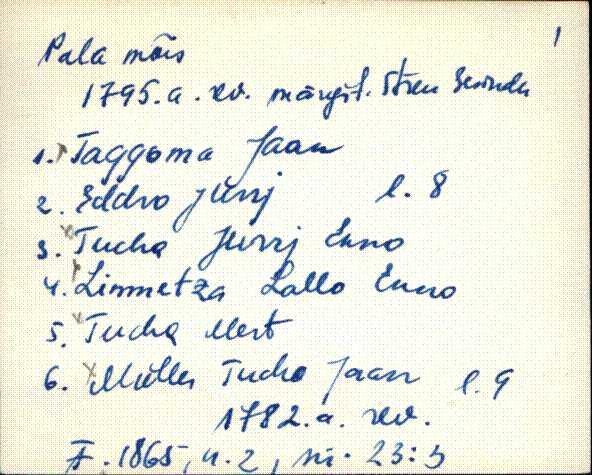 1
Pala mõis
1795.a. rev. märgit.
1. Taggoma Jaan
2. Eddro Jürrj l. 8
3. Tucha Jürrj Enno
4. Limmetza Lallo Enno
5. Tucha Mert
6. Müller Tucha Jaan l. 9
1782.a. rev.
F. 1865, n. 2, nr. 23:3